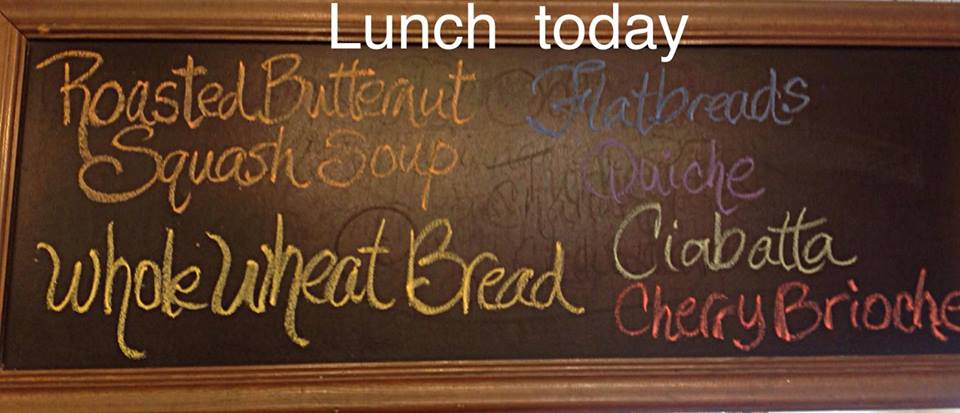 Lunch today
Roasted Butternut
Squash Soup
Whole Wheat Bread
Flatbreads
Quiche
Ciabatta
Cherry Brioche